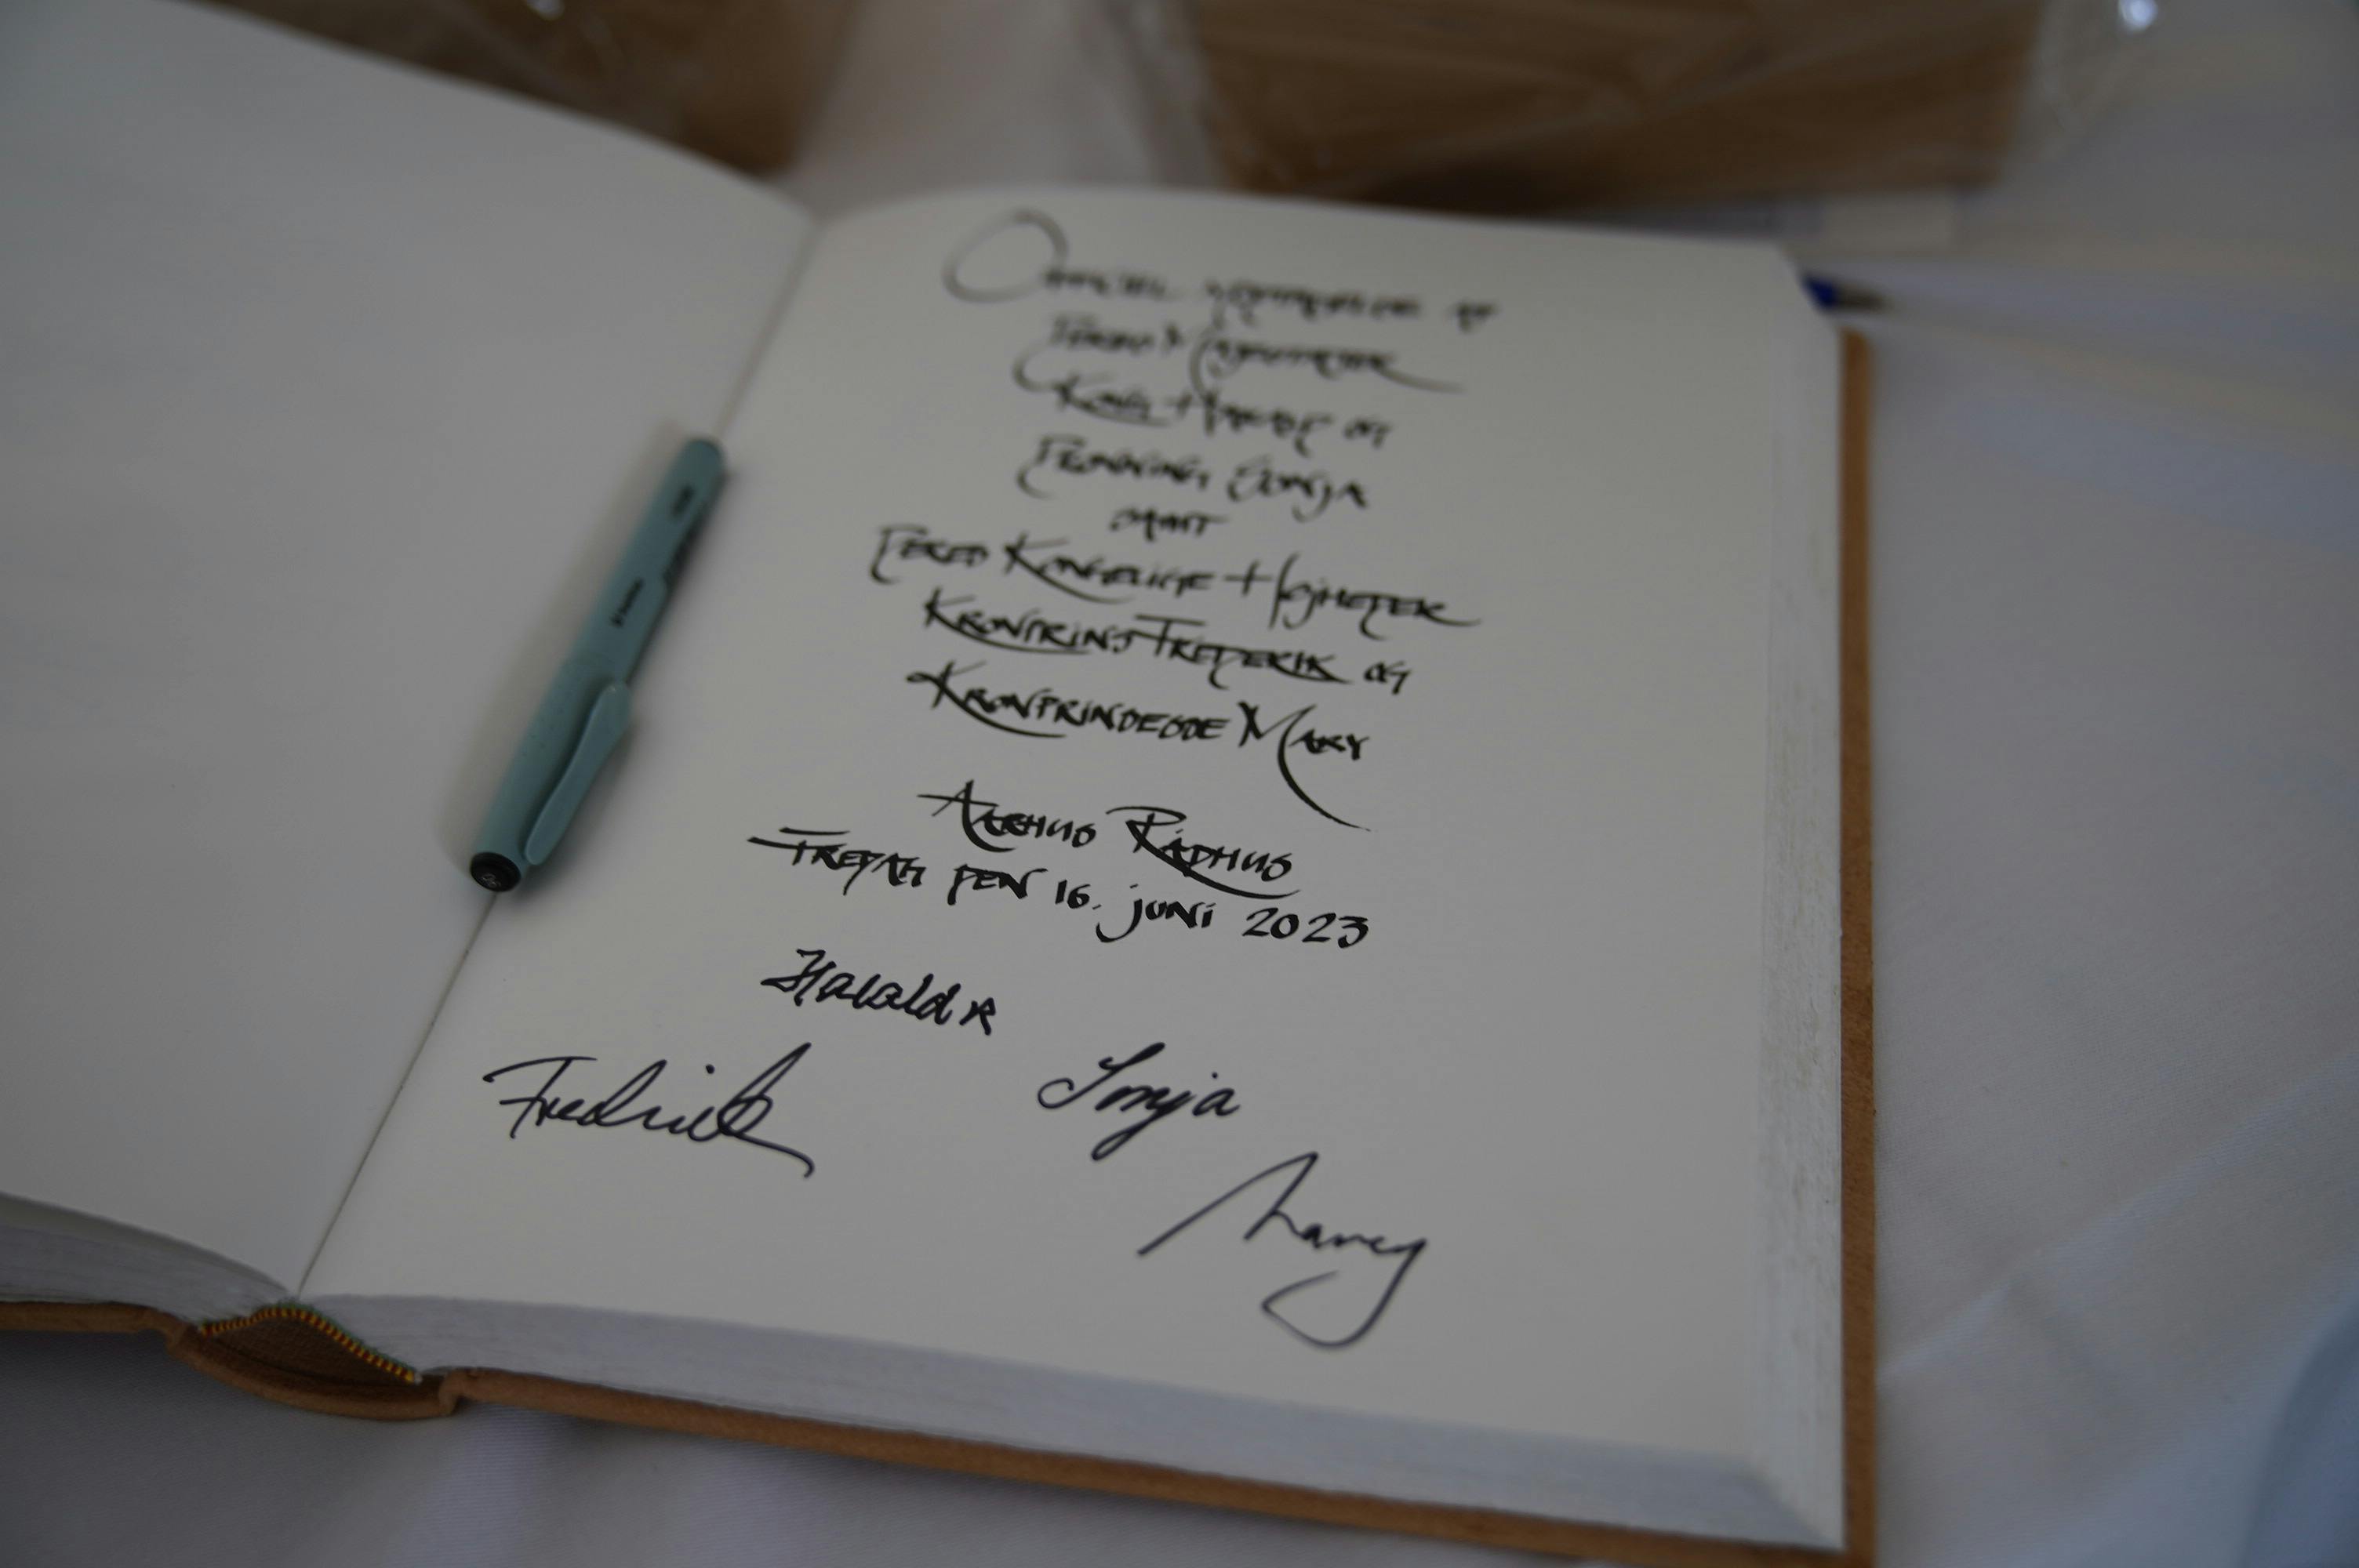 Officiel modtagelse af
Deres Majestæter
Kong Harald og
Dronning Sonja
samt
Deres Kongelige Højheder
Kronprins Frederik og
Kronprindesse Mary
Aarhus Rådhus
Fredag den 16. juni 2023
Harald R
Frederik
Sonja
Mary